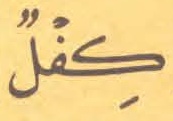 كِفْلٌ